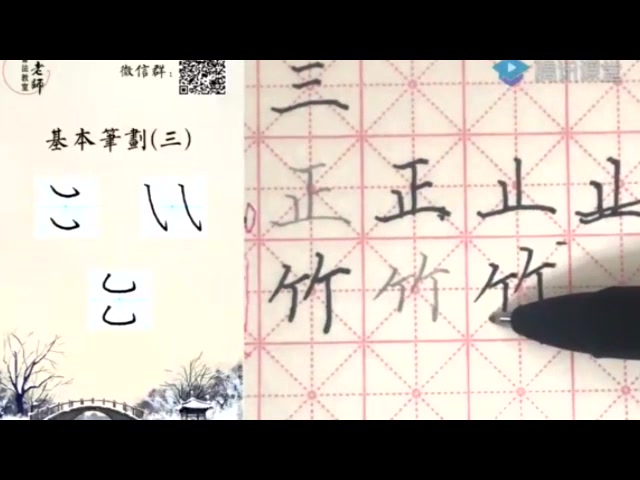 老師
教室
微信群:
腾讯课堂
基本筆劃(三)
三
正 正 止 止
竹 竹 竹